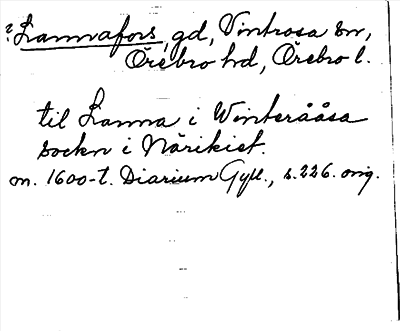 ? Lannafors, gd, Vintrosa sn,
Örebro hd, Örebro l.
til Lanna i Winterååsa
sockn i Närikist.
m. 1600-t. Diarium Gyll., s. 226. orig.